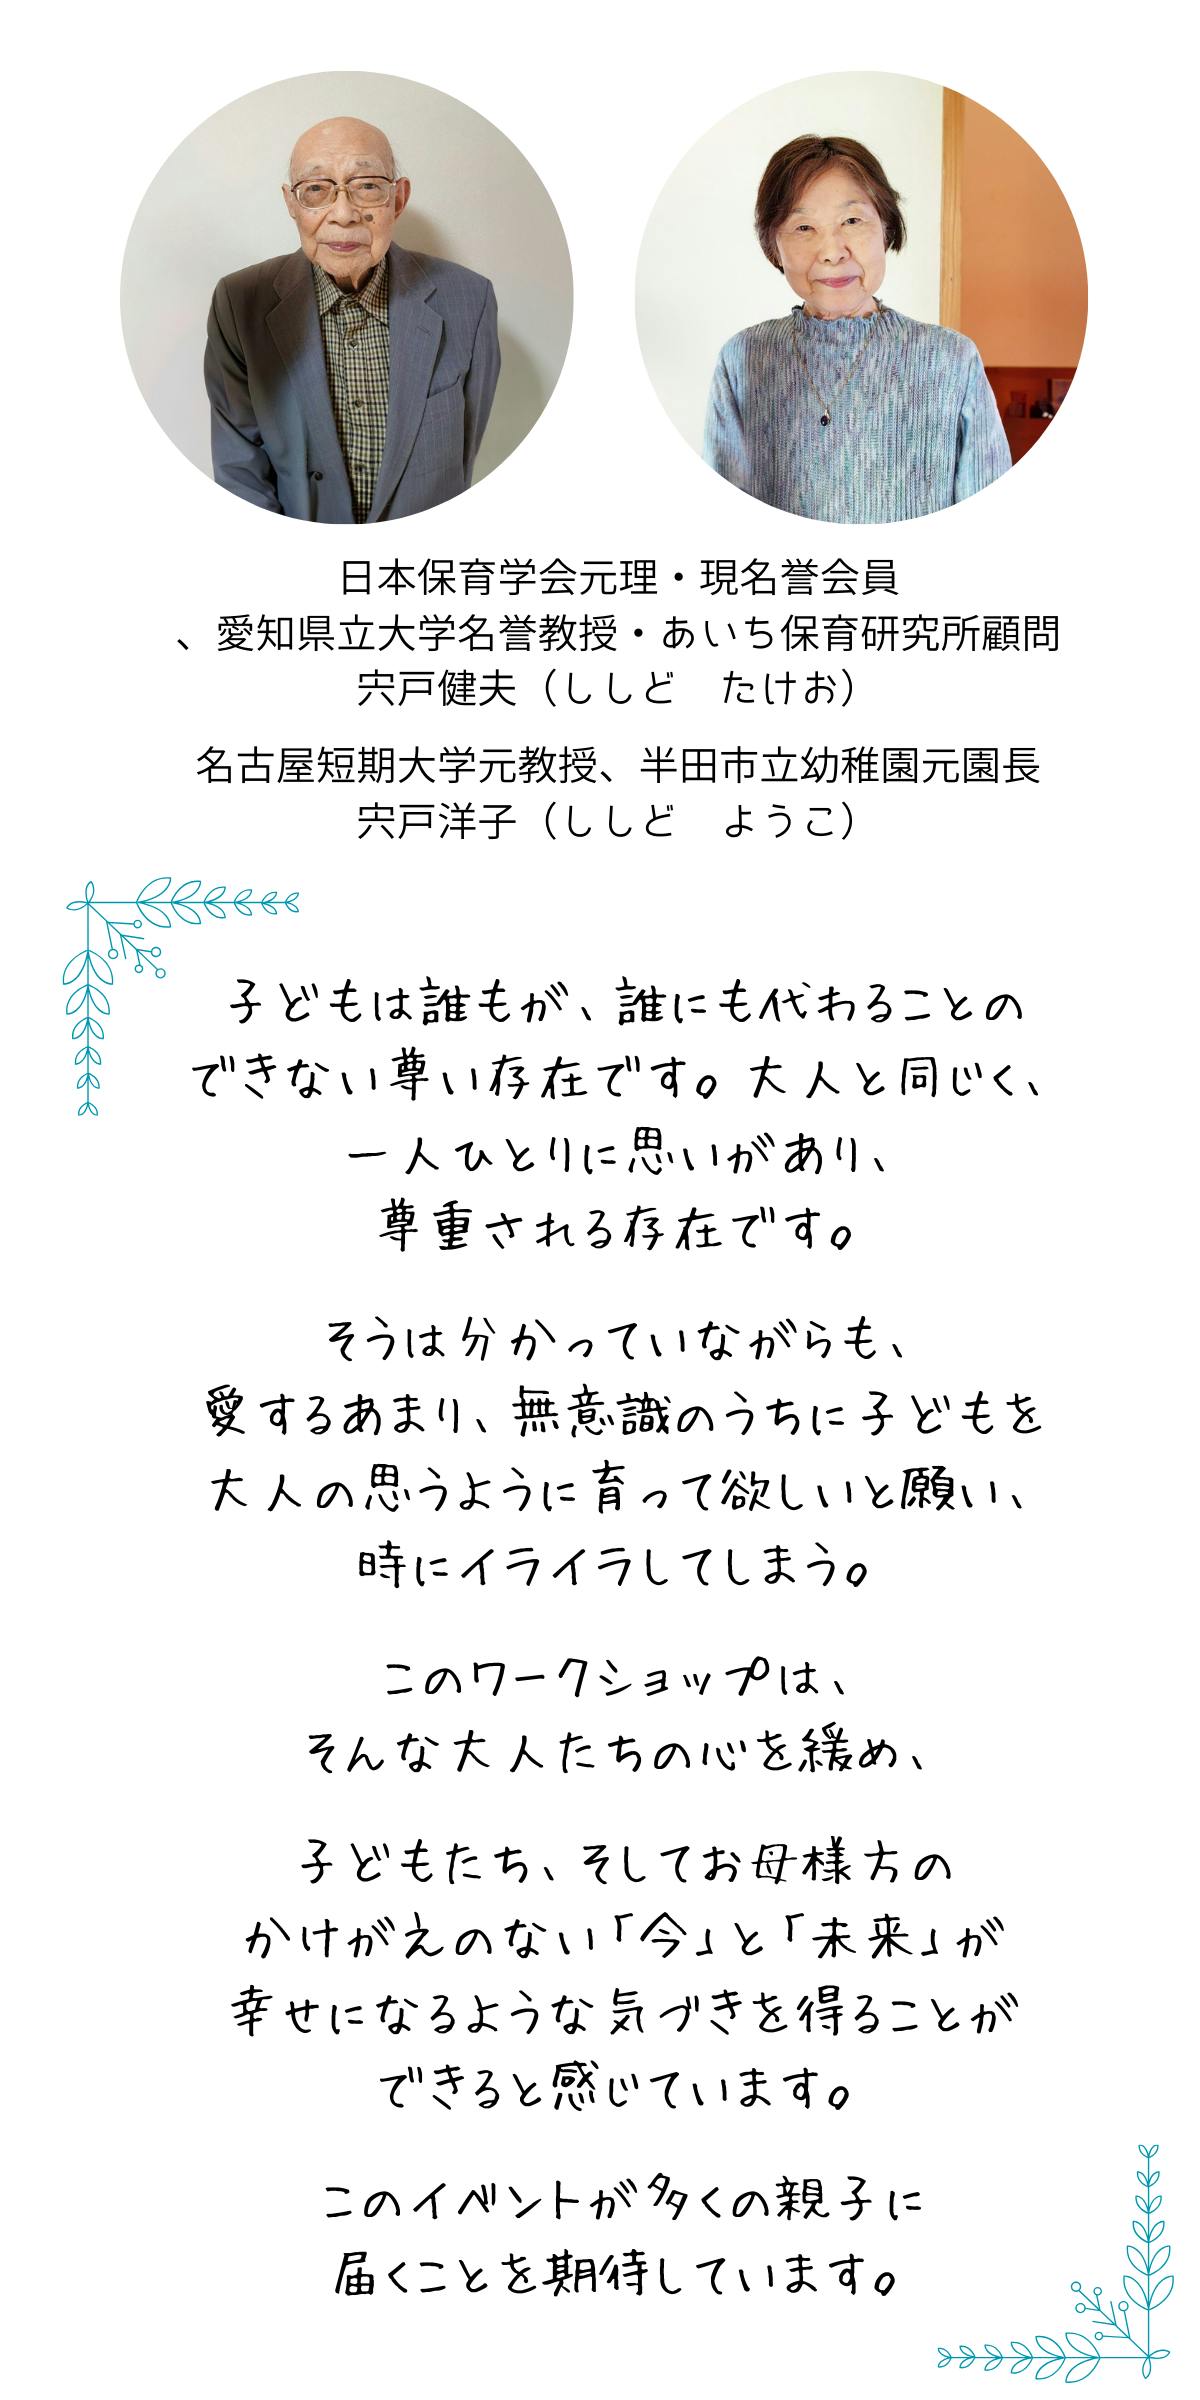 日本保育学会元理・現名誉会員
、愛知県立大学名誉教授・あいち保育研究所顧問
宍戸健夫（ししど　たけお）
名古屋短期大学元教授、半田市立幼稚園元園長
宍戸洋子（ししど　ようこ）
子どもは誰もが、誰にも代わることの
できない尊い存在です。大人と同じく、
一人ひとりに思いがあり、
尊重される存在です。
そうは分かっていながらも、
愛するあまり、無意識のうちに子どもを
大人の思うように育って欲しいと願い、
時にイライラしてしまう。
このワークショップは、
そんな大人たちの心を緩め、
子どもたち、そしてお母様方の
かけがえのない「今」と「未来」が
幸せになるような気づきを得ることが
できると感じています。
このイベントが多くの親子に
届くことを期待しています。